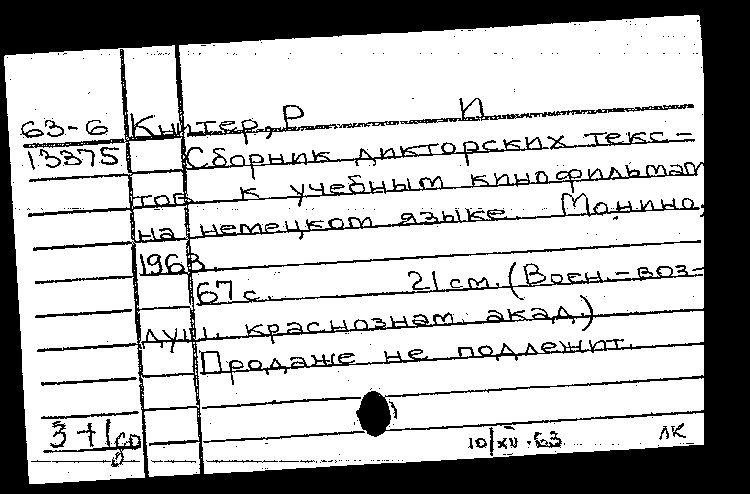 63-6 Книтер, Р И
13375 Сборник дикторских текс-
тов к учебным кинофильмам
на немецком языке. Монино,
1963.
67 с. 21 см. (Воен.-воз-
душ. краснознам. акад.)
Продаже не подлежит.
3+1
10/XII.63 ЛК